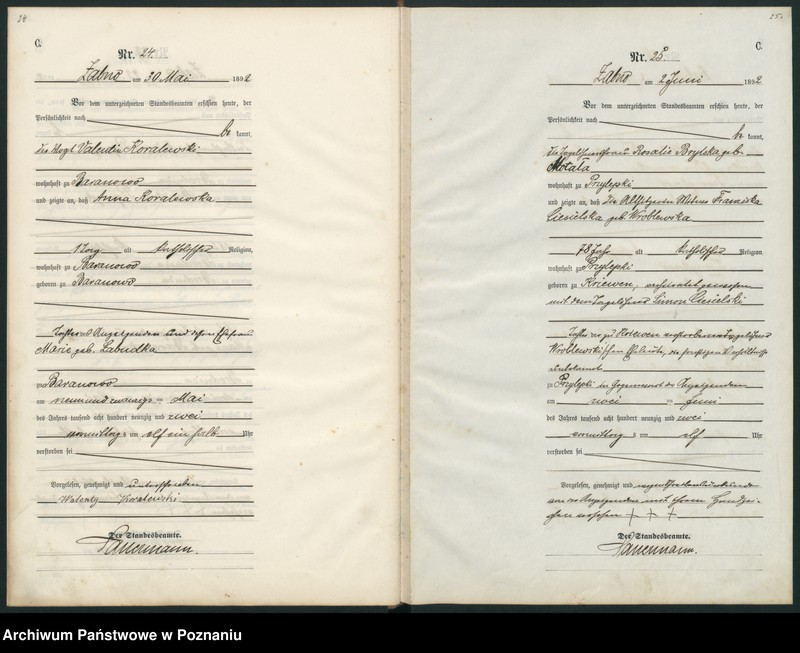 24
C.
Nr. 24.
Zabno am 30 Mai 1892
Vor dem unterzeichneten Standesbeamten erschien heute, der
Persönlichkeit nach
be kannt,
die Vogt Valentin Koralewski
wohnhaft zu Baranowo
und zeigte an, daß Anna Koralewska
1 Tag alt katholischer Religion,
wohnhaft zu Baranowo
geboren zu Baranowo
Tochter des Anzeigenden und dessen Ehefrau
Marie geb. Labudka
zu Baranowo
am neunundzwanzig ten Mai
des Jahres tausend acht hundert neunzig und zwei
vormittags um elf ein halb Uhr
verstorben sei
Vorgelesen, genehmigt und unterschrieben
Walenty Koralewski
Der Standesbeamte.
25.
C.
Nr. 25
Zabno am 2 Juni 1892
Vor dem unterzeichneten Standesbeamten erschien heute, der
Persönlichkeit nach
be kannt,
die Rosalie geb.
Motała
wohnhaft zu Przylepki
und zeigte an, daß die Wittwe Franciska
Ciesielska geb. Wroblewska
78 Jahr alt katholischer Religion
wohnhaft zu Przylepki
geboren zu Kriewen, verheiratet gewesen
mit dem Tagelöhner Simon Ciesielski
Tochter der zu Kriewen verstorbenen
Wroblewskischen Eheleute,
unbekannt
zu Przylepki in Gegenwart der Anzeigenden
am zwei ten Juni
des Jahres tausend acht hundert neunzig und zwei
vormittags um elf Uhr
verstorben sei
Vorgelesen, genehmigt und wegen
von der Anzeigenden mit ihrem Handzei-
chen versehen + + +
Der Standesbeamte.
Archiwum Państwowe w Poznaniu